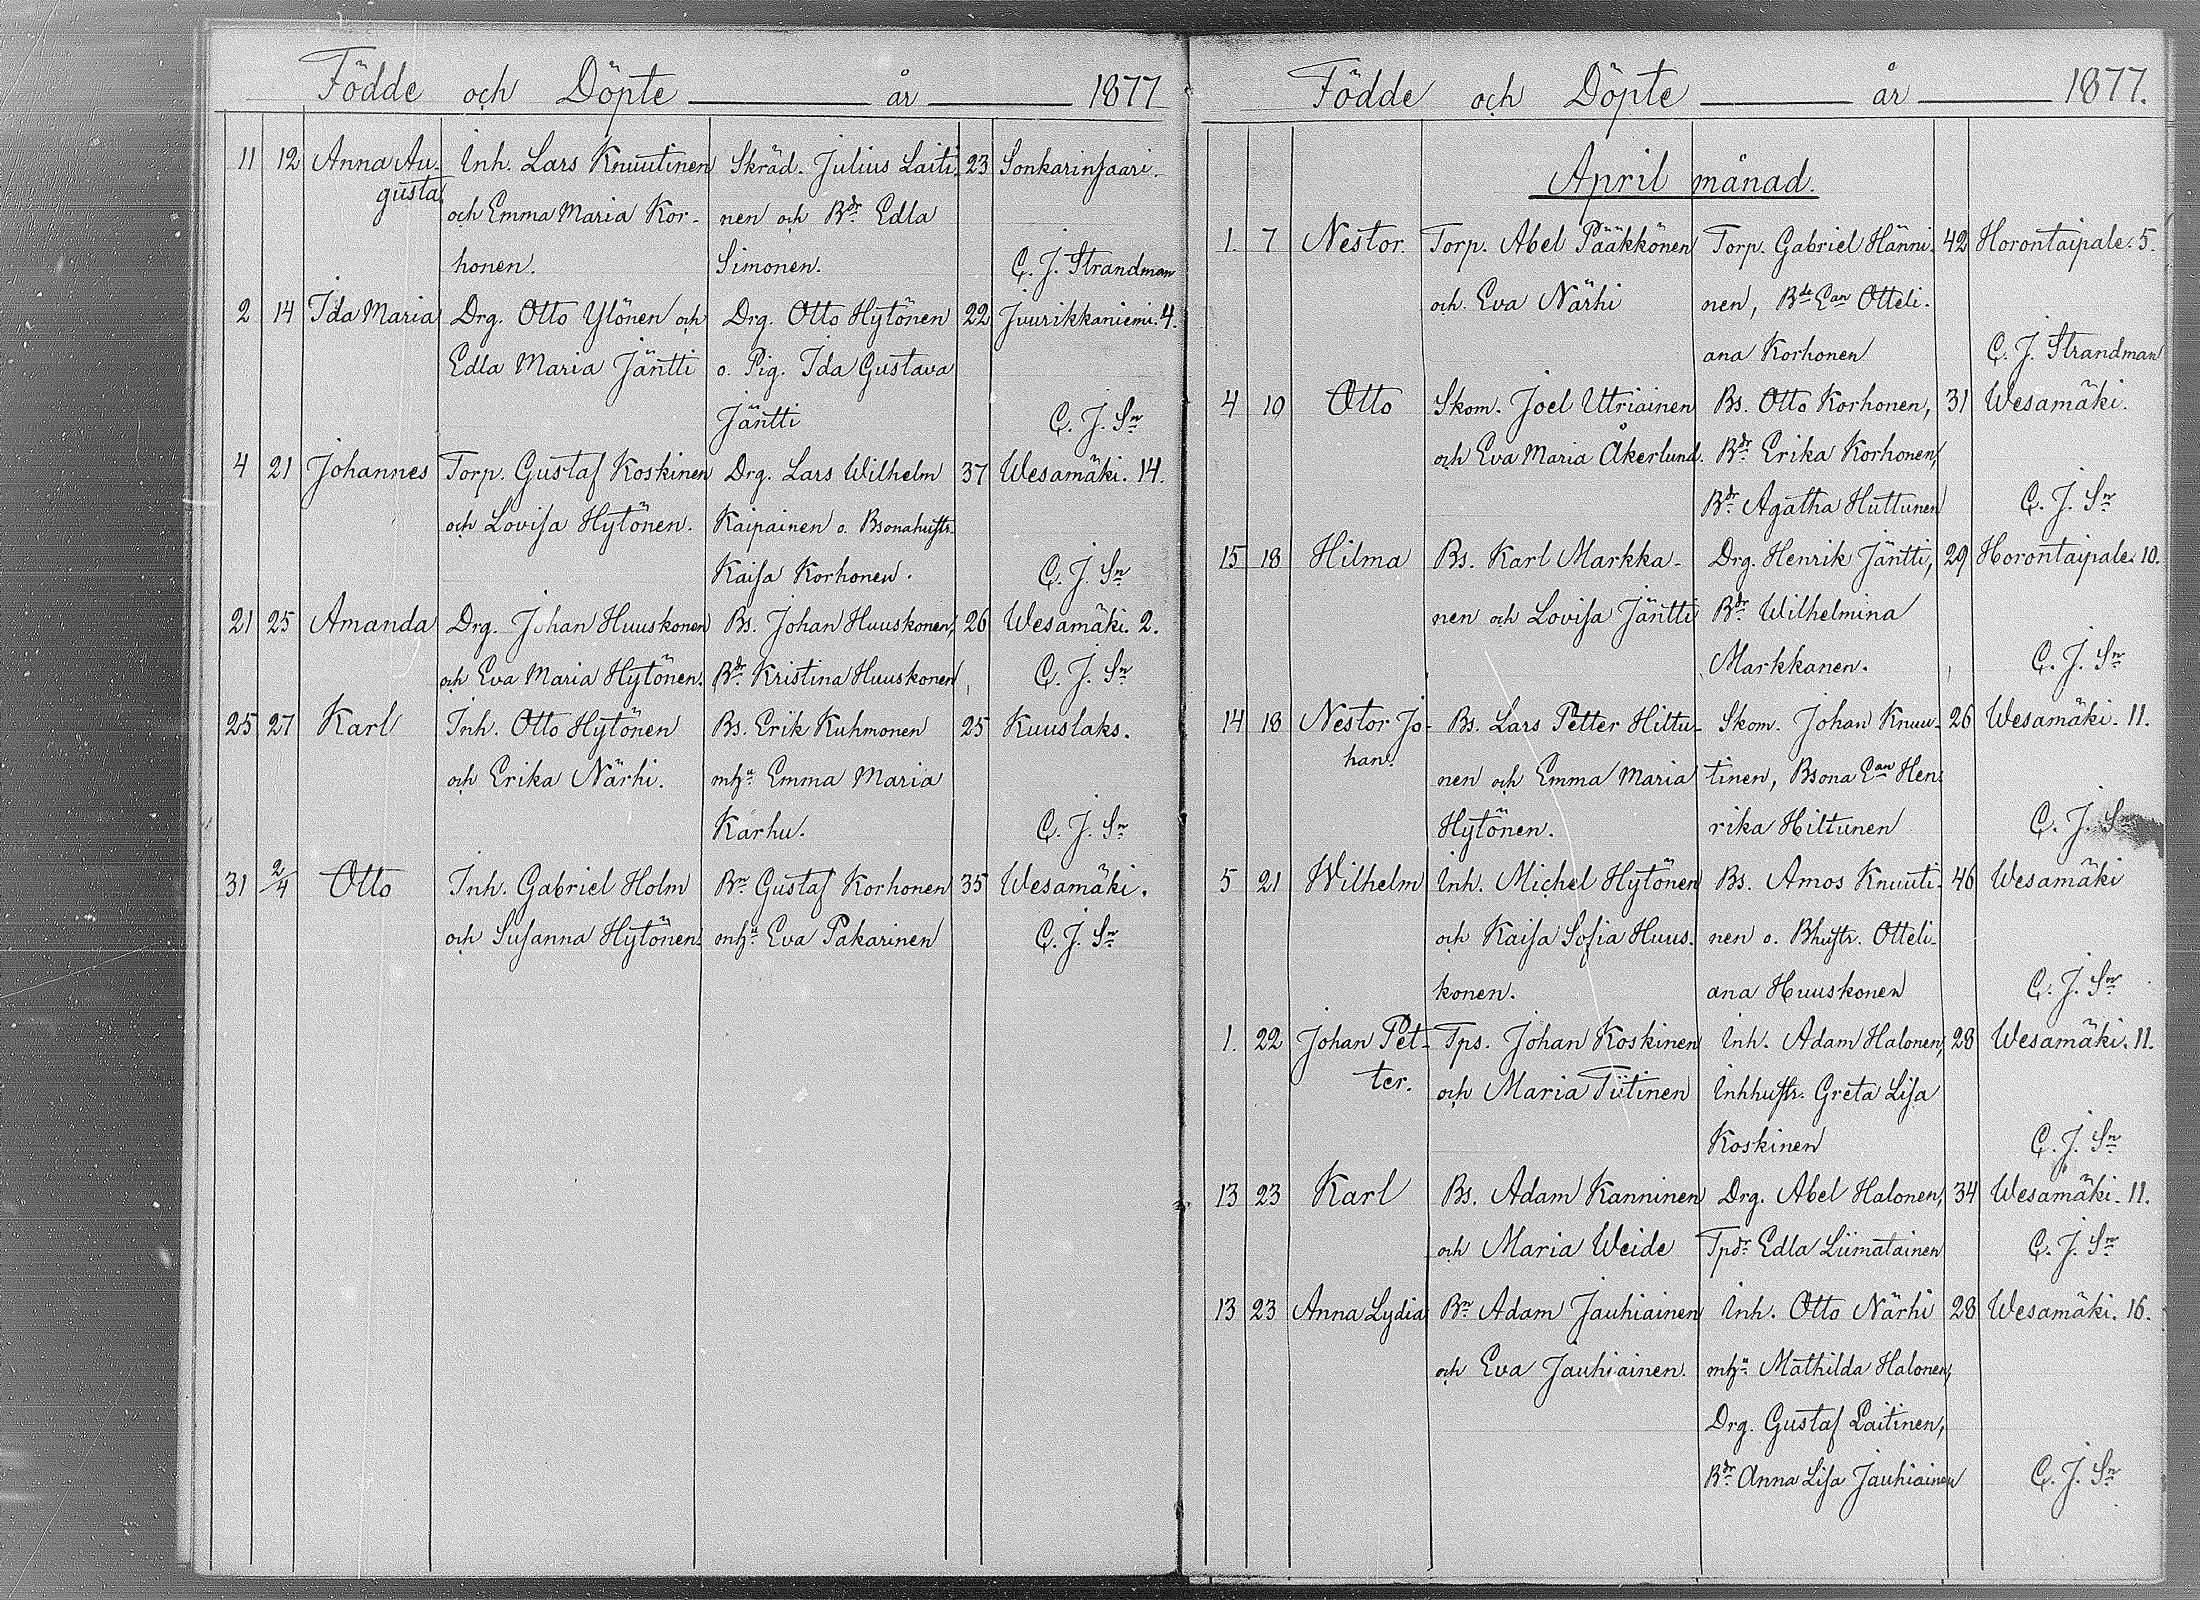 Födde och Döpte år 1877
11 12 Anna Au- Inh. Lars Knuutinen Skräd. Julius Laiti- 23 Sonkarinsaari.
gusta och Emma Maria Kor- nen och Bdr Edla
honen. Simonen. C. J. Strandman
2 14 Ida Maria Drg. Otto Ylönen och Drg. Otto Hytönen 22 Juurikkaniemi. 4.
Edla Maria Jäntti o. Pig. Ida Gustava
Jäntti C. J. Sn
4 21 Johannes Torp. Gustaf Koskinen Drg. Lars Wilhelm 37 Wesamäki. 14.
och Lovisa Hytönen. Kaipainen o. Bsonahustr.
Kaisa Korhonen. C. J. Sn
21 25 Amanda Drg. Johan Huuskonen Bs. Johan Huuskonen, 26 Wesamäki. 2.
och Eva Maria Hytönen. Bdr Kristina Huuskonen C. J. Sn
25 27 Karl Inh. Otto Hytönen Bs. Erik Kuhmonen 25 Kuuslaks.
och Erika Närhi. mhu Emma Maria
Karhu. C. J. Sn
31 2/4 Otto Inh. Gabriel Holm Bn Gustaf Korhonen 35 Wesamäki.
och Susanna Hytönen. mhu Eva Pakarinen C. J. Sn
Födde och Döpte år 1877.
April månad.
1. 7 Nestor. Torp. Abel Pääkkönen Torp. Gabriel Hänni- 42 Horontaipale. 5.
och Eva Närhi nen, Bde Ean Otteli-
ana Korhonen C. J. Strandman
4 10 Otto Skom. Joel Utriainen Bs. Otto Korhonen, 31 Wesamäki.
och Eva Maria Åkerlund. Bdr Erika Korhonen,
Bdr Agatha Huttunen C. J. Sn
15 18 Hilma Bs. Karl Markka- Drg. Henrik Jäntti, 29 Horontaipale. 10.
nen och Lovisa Jäntti Bdr Wilhelmina
Markkanen. C. J. Sn
14 18 Nestor Jo- Bs. Lars Petter Hiltu- Skom. Johan Knuu- 26 Wesamäki. 11.
han. nen och Emma Maria tinen, Bsona Ean Hen-
Hytönen. rika Hiltunen C. J. Sn
5 21 Wilhelm Inh. Michel Hytönen Bs. Amos Knuuti- 46 Wesamäki
och Kaisa Sofia Huus- nen o. Bhustr. Otteli-
konen. ana Huuskonen C. J. Sn
1. 22 Johan Pet- Tps. Johan Koskinen Inh. Adam Halonen, 28 Wesamäki. 11.
ter. och Maria Tiitinen Inhhustr. Greta Lisa
Koskinen C. J. Sn
13 23 Karl Bs. Adam Kanninen Drg. Abel Halonen, 34 Wesamäki. 11.
och Maria Weide Tpdr Edla Liimatainen C. J. Sn
13 23 Anna Lydia Bn Adam Jauhiainen Inh. Otto Närhi 28 Wesamäki. 16.
och Eva Jauhiainen. mhu Mathilda Halonen,
Drg. Gustaf Laitinen,
Bdr Anna Lisa Jauhiainen C. J. Sn